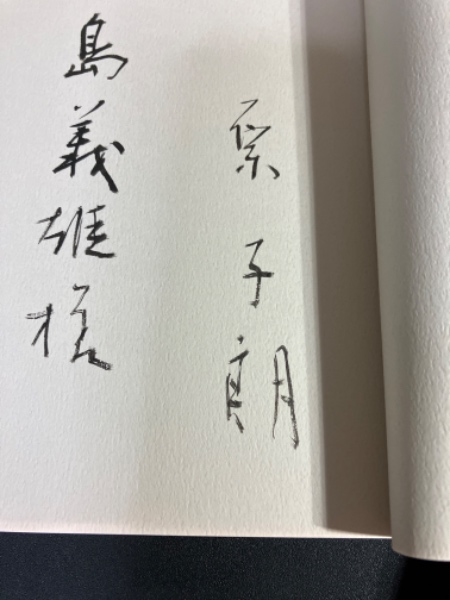 原子朗
島義雄様